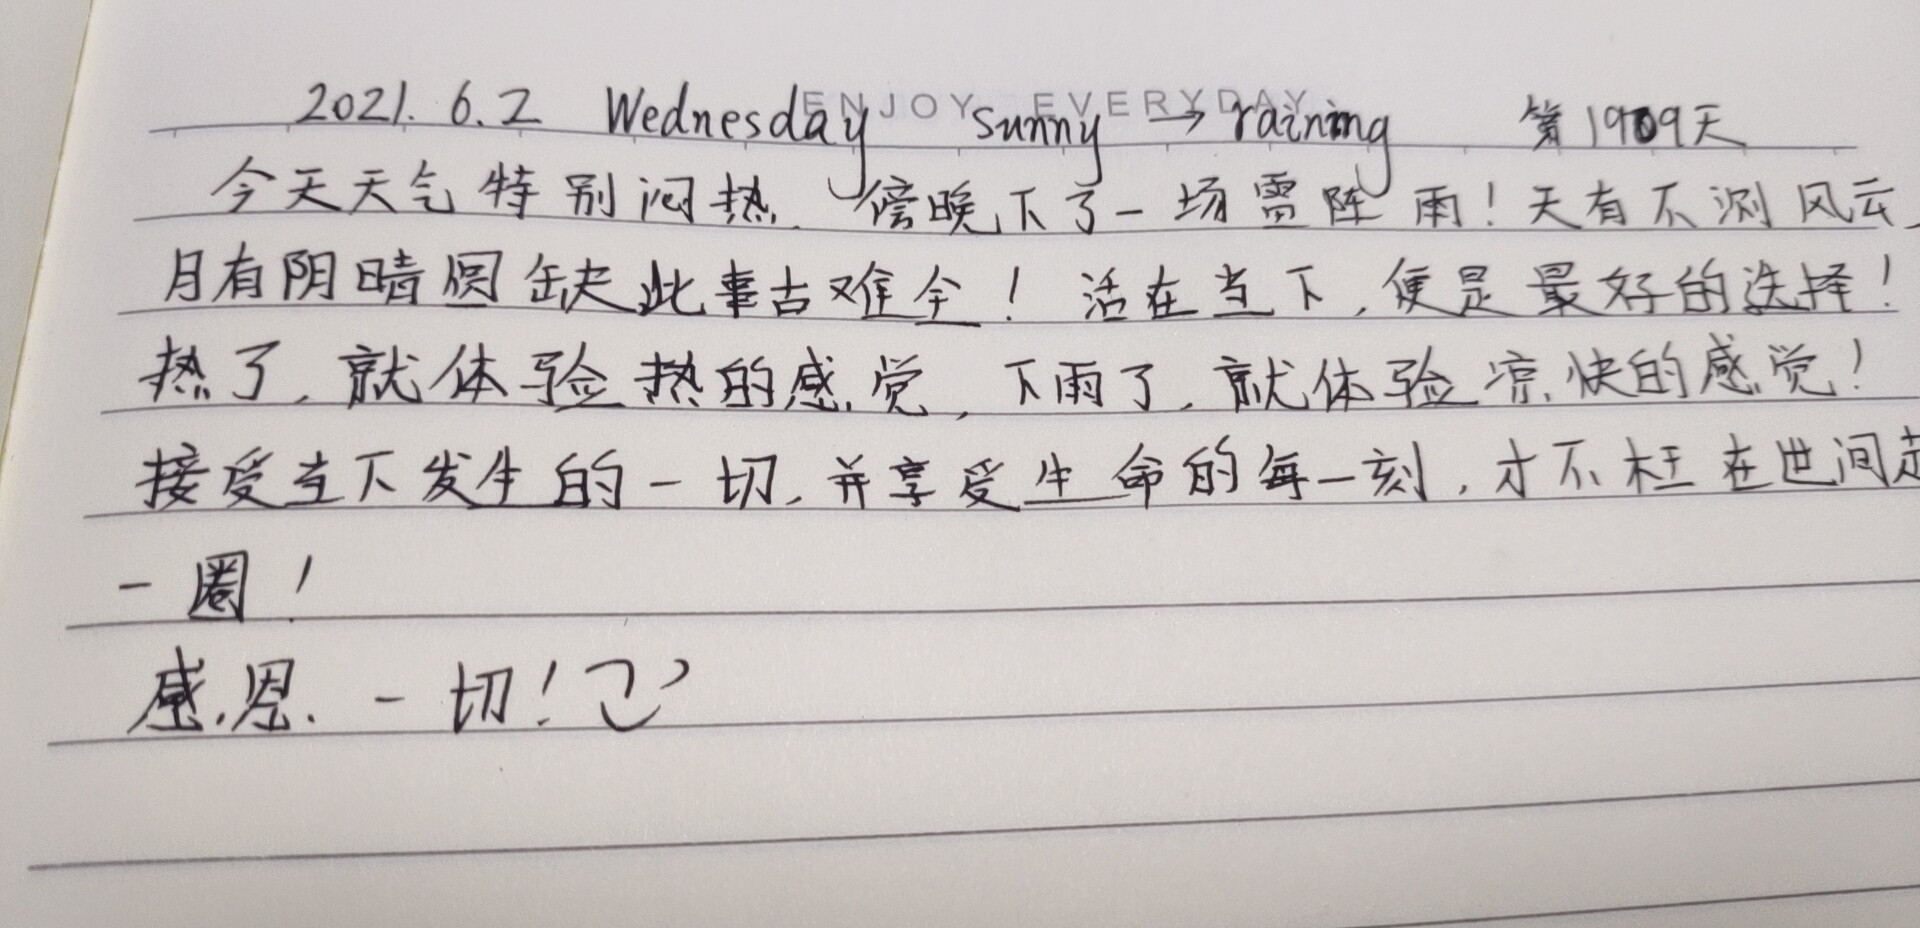 ENJOY EVERYDAY
2021.6.2 Wednesday sunny → raining 第1909天
今天天气特别闷热.傍晚下了一场雷阵雨!天有不测风云,
月有阴晴圆缺此事古难全!活在当下,便是最好的选择!
热了,就体验热的感觉,下雨了,就体验凉快的感觉!
接受当下发生的一切,并享受生命的每一刻,才不枉在世间走
一圈!
感恩一切!